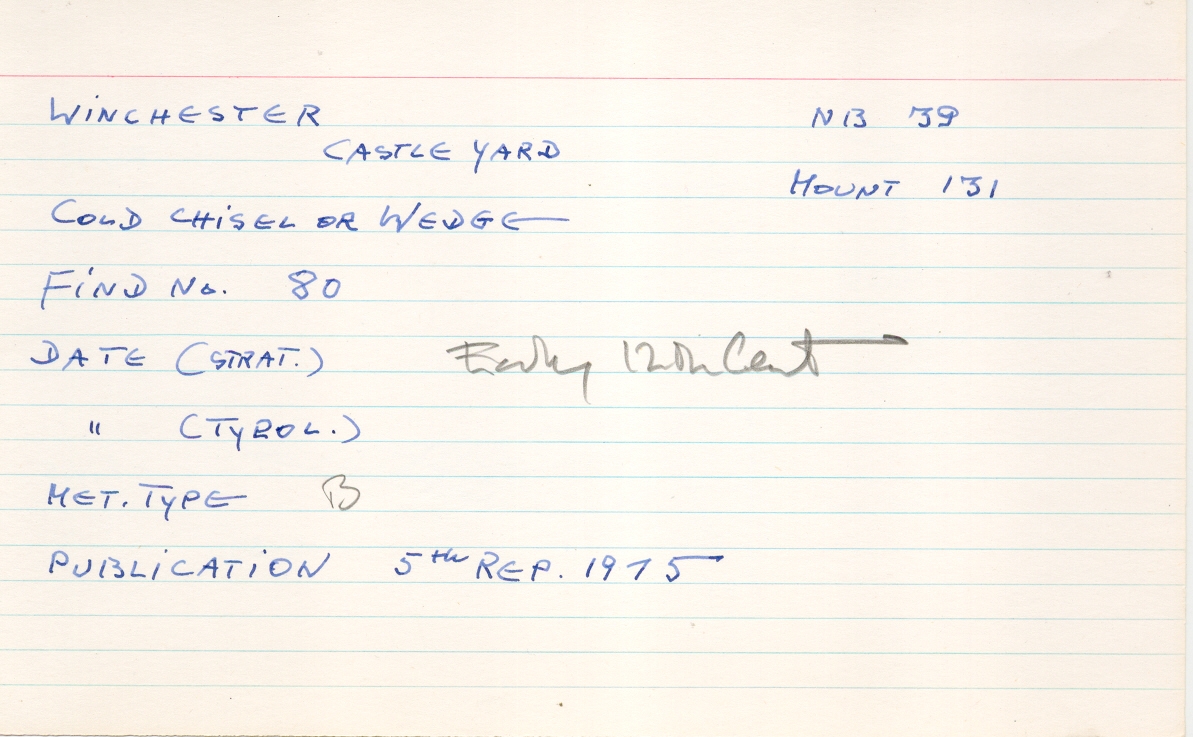 WINCHESTER
CASTLE YARD
NB 39
MOUNT 131
COLD CHISEL OR WEDGE
FIND No. 80
DATE (STRAT.) Early 12th Cent
" (TYPOL.)
MET. TYPE B
PUBLICATION 5th REP. 1975